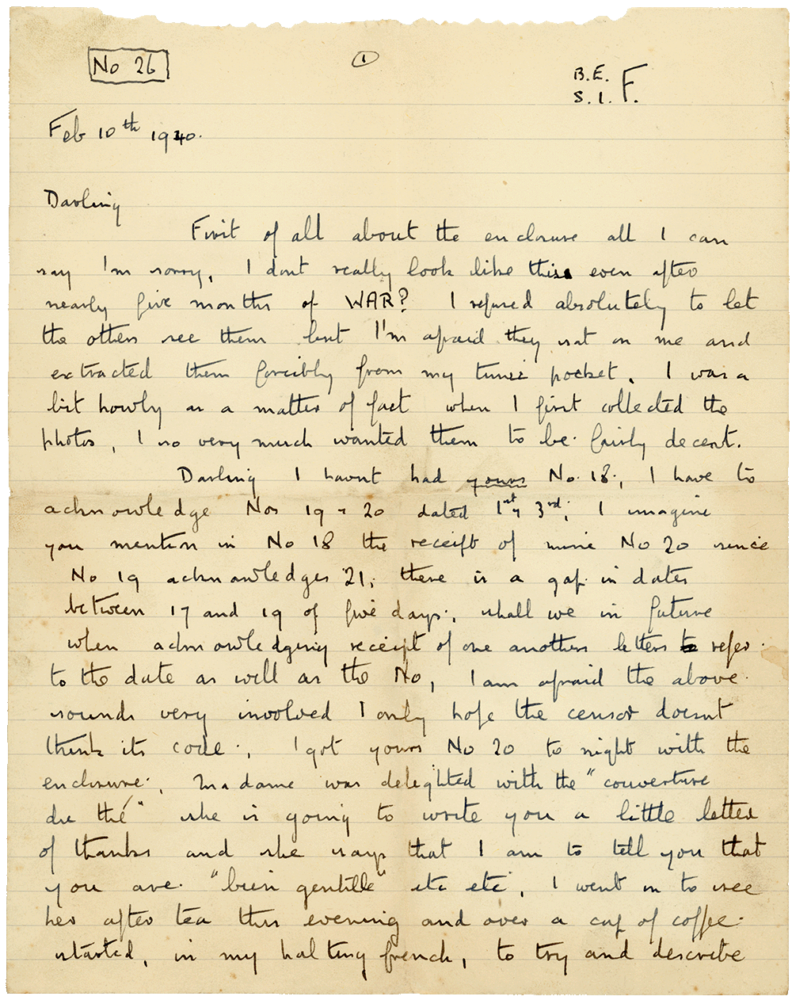 No 26
①
B.E.F.
S.I.
Feb 10th 1940.
Darling
First of all about the enclosure all I can
say I'm sorry, I dont really look like this even after
nearly five months of WAR? I refused absolutely to let
the others see them but I'm afraid they sat on me and
extracted them forcibly from my tunic pocket. I was a
bit howly as a matter of fact when I first collected the
photos, I so very much wanted them to be fairly decent.
Darling I havnt had yours No. 18., I have to
acknowledge Nos 19 & 20 dated 1st & 3rd; I imagine
you mention in No 18 the receipt of mine No 20 since
No 19 acknowledges 21; there is a gap in dates
between 17 and 19 of five days., shall we in future
when acknowledging receipt of one anothers letters refer
to the date as well as the No, I am afraid the above
sounds very involved I only hope the censor doesnt
think its code., I got yours No 20 to night with the
enclosure., Madame was delighted with the "couverture
du thé" she is going to write you a little letter
of thanks and she says that I am to tell you that
you are "bien gentille" etc etc, I went in to see
her after tea this evening and over a cup of coffee
started, in my halting french, to try and describe